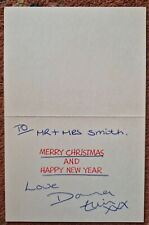 TO MR + MRS Smith.
MERRY CHRISTMAS
AND
HAPPY NEW YEAR
Love